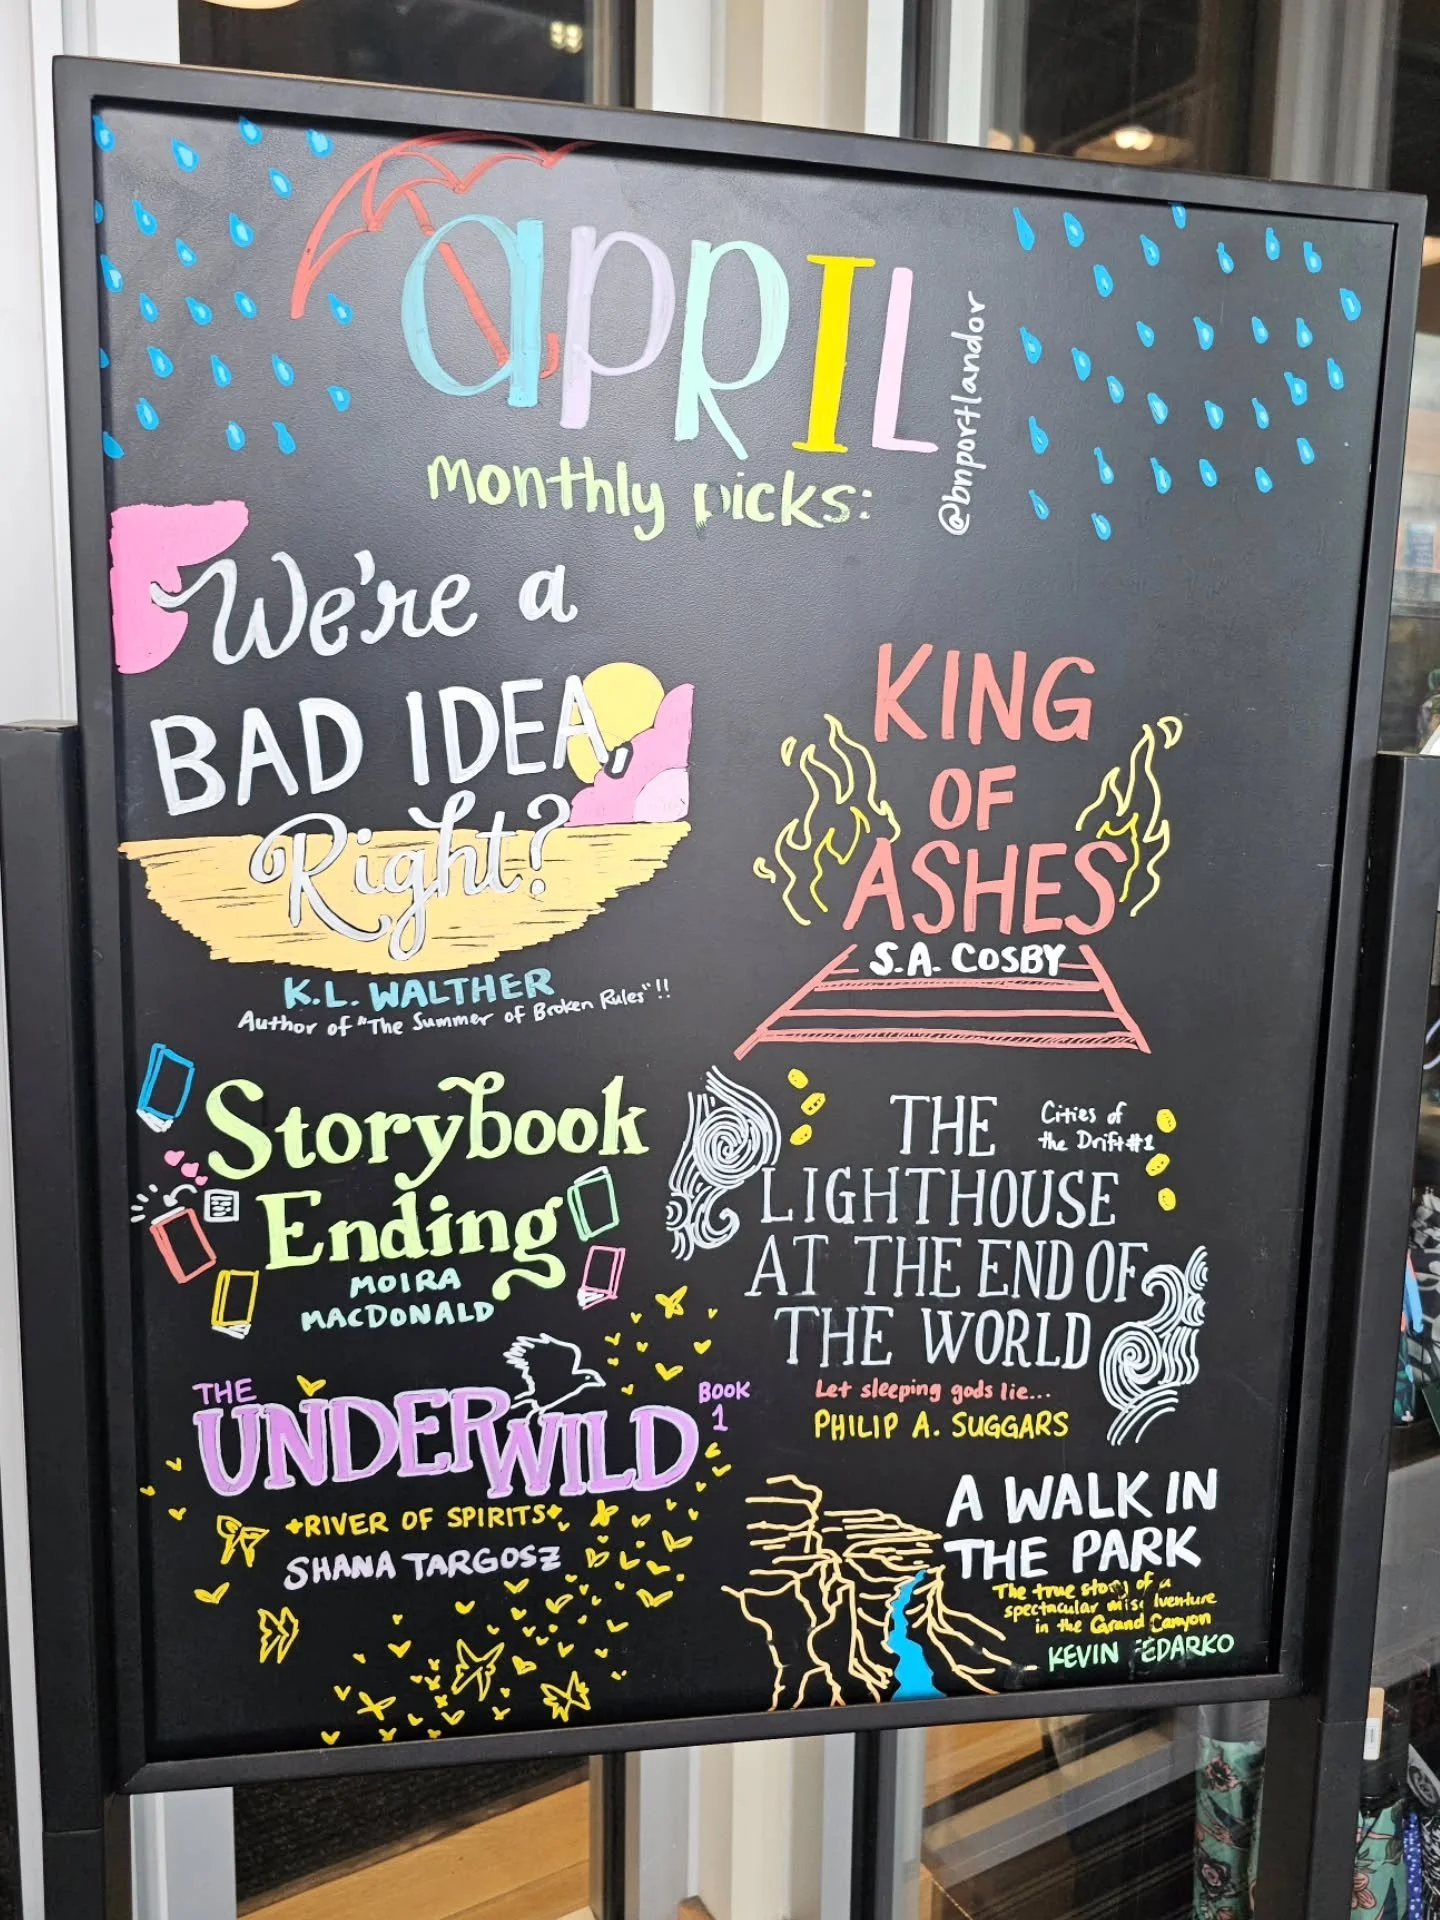 aPRIL
@bnportlandor
monthly picks:
We're a
BAD IDEA,
Right?
K.L. WALTHER
Author of "The Summer of Broken Rules"!!
KING
OF
ASHES
S.A. COSBY
Storybook
Ending
MOIRA
MACDONALD
THE
Cities of
the Drift #1
LIGHTHOUSE
AT THE END OF
THE WORLD
Let sleeping gods lie...
PHILIP A. SUGGARS
THE
UNDERWILD
BOOK
1
RIVER OF SPIRITS
SHANA TARGOSZ
A WALK IN
THE PARK
The true story of a
spectacular misadventure
in the Grand Canyon
KEVIN FEDARKO